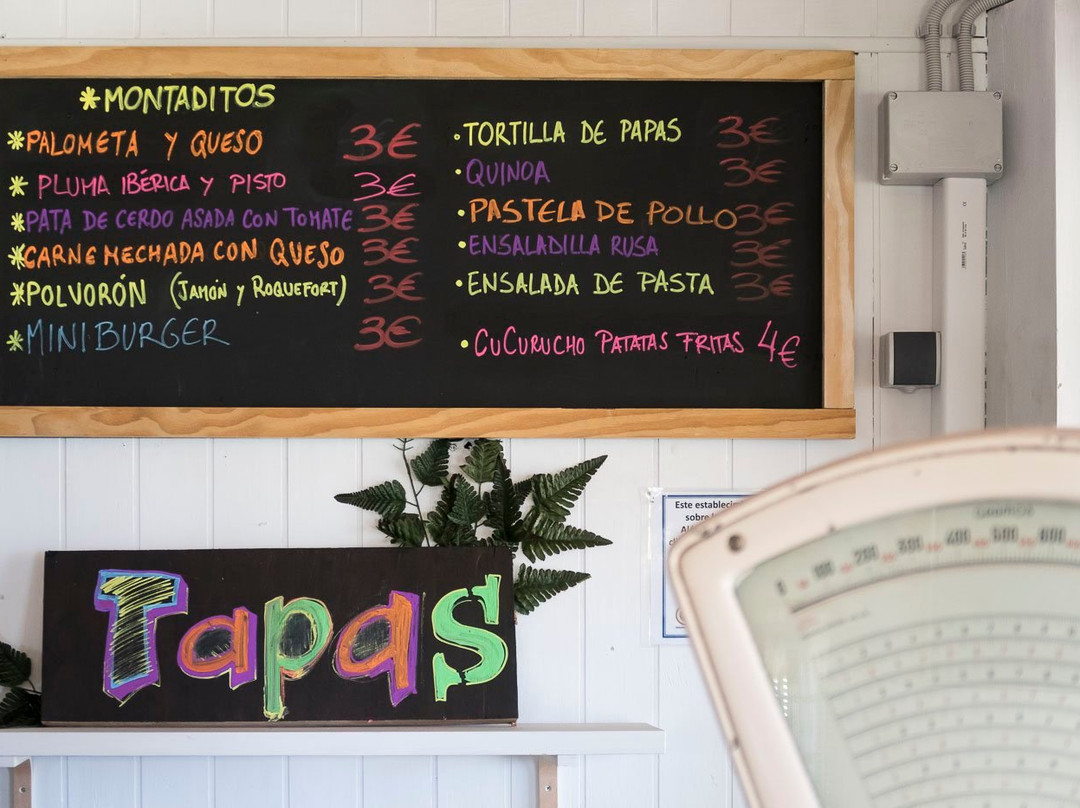 *MONTADITOS
*PALOMETA Y QUESO 3€
* PLUMA IBÉRICA Y PISTO 3€
*PATA DE CERDO ASADA CON TOMATE 3€
*CARNE MECHADA CON QUESO 3€
*POLVORÓN (JAMÓN Y ROQUEFORT) 3€
*MINI BURGER 3€
•TORTILLA DE PAPAS 3€
•QUINOA 3€
•PASTELA DE POLLO 3€
•ENSALADILLA RUSA 3€
•ENSALADA DE PASTA 3€
•CUCURUCHO PATATAS FRITAS 4€
Tapas
Este
sobre
0 100 200 300 400 500 600